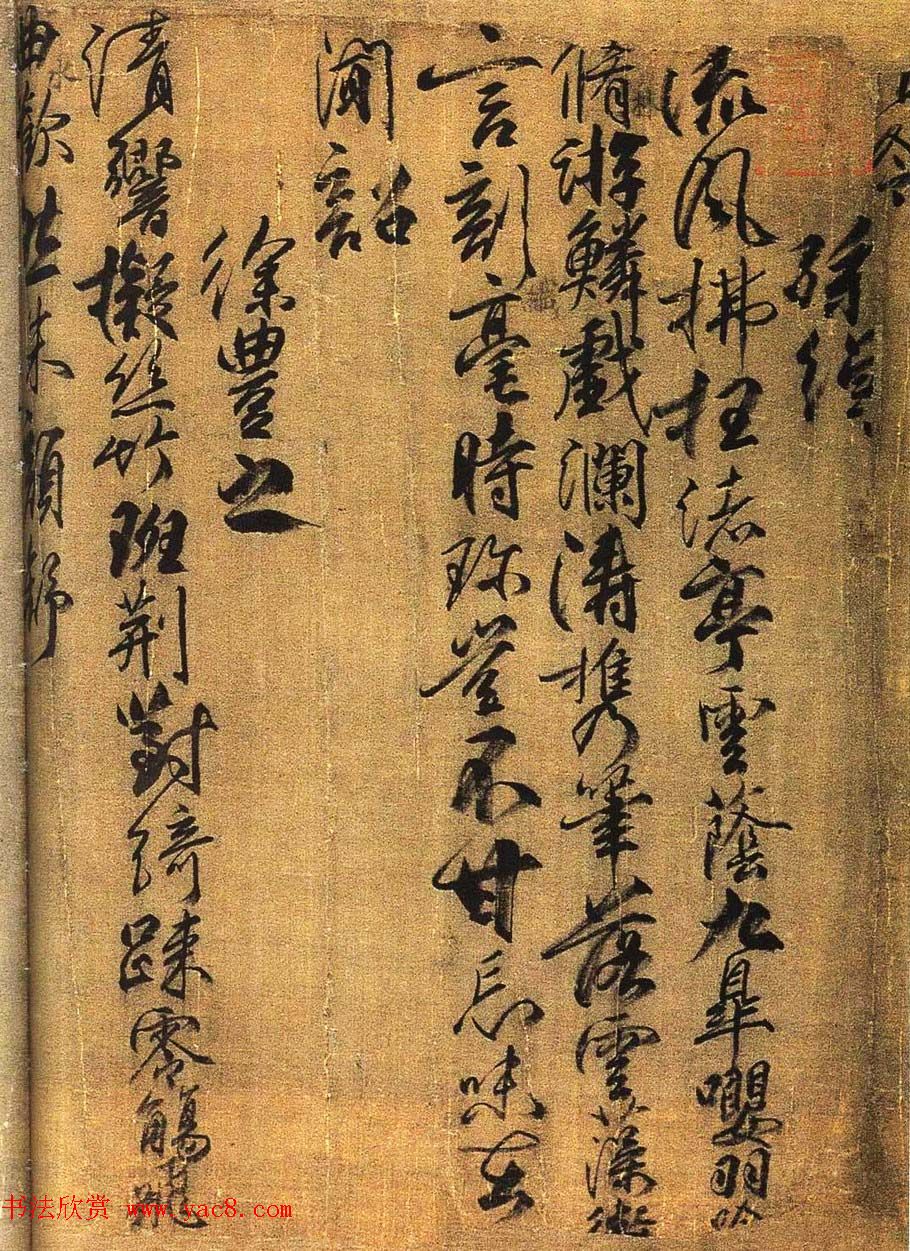 孫綽
流風拂枉渚亭雲蔭九皐嚶羽吟
脩游鱗戲瀾濤携筆落雲藻微
言剖毫時珍豈不甘忘味在
聞韶
徐豐之
清響擬絲竹班荆對綺踈零觴飛
曲水歡然朱顔舒
书法欣赏 www.yac8.com